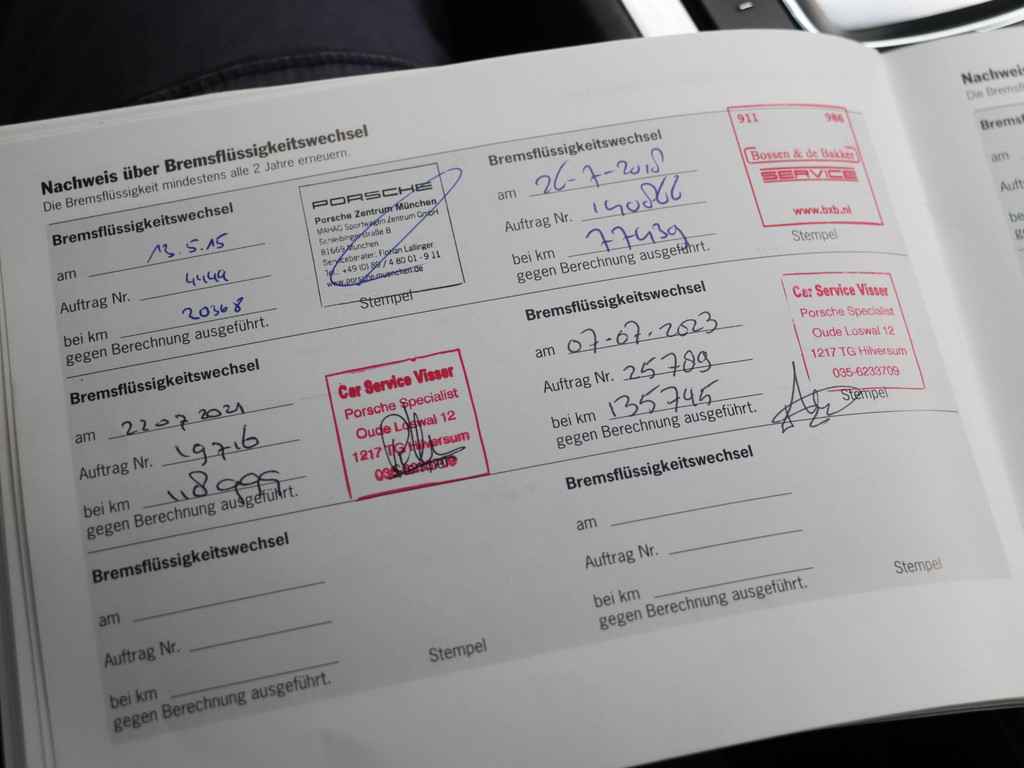 Nachweis über Bremsflüssigkeitswechsel
Die Bremsflüssigkeit mindestens alle 2 Jahre erneuern.
Bremsflüssigkeitswechsel
am 13.5.15
Auftrag Nr. 4449
bei km 20368
gegen Berechnung ausgeführt.
PORSCHE
Porsche Zentrum München
MAHAG Sportwagen Zentrum GmbH
Schleibingerstraße 8
81669 München
Serviceberater: Florian Lallinger
Tel. +49 (0) 89 / 4 80 01 - 9 11
www.porsche-muenchen.de
Stempel
Bremsflüssigkeitswechsel
am 26-7-2018
Auftrag Nr. 140866
bei km 77439
gegen Berechnung ausgeführt.
911 986
Bossen & de Bakker
SERVICE
www.bxb.nl
Stempel
Bremsflüssigkeitswechsel
am 22 07 2021
Auftrag Nr. 19716
bei km 118999
gegen Berechnung ausgeführt.
Car Service Visser
Porsche Specialist
Oude Loswal 12
1217 TG Hilversum
Bremsflüssigkeitswechsel
am 07-07-2023
Auftrag Nr. 25789
bei km 135745
gegen Berechnung ausgeführt.
Car Service Visser
Porsche Specialist
Oude Loswal 12
1217 TG Hilversum
035-6233709
Stempel
Bremsflüssigkeitswechsel
am
Auftrag Nr.
bei km
gegen Berechnung ausgeführt.
Stempel
Bremsflüssigkeitswechsel
am
Auftrag Nr.
bei km
gegen Berechnung ausgeführt.
Stempel
Nachweis
Die
am